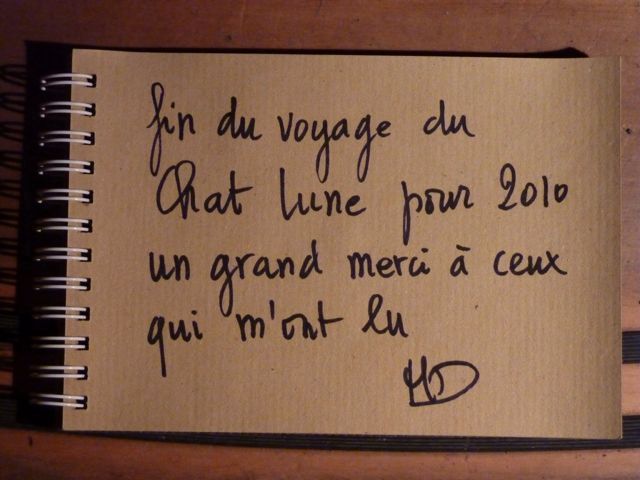 fin du voyage du
Chat Lune pour 2010
un grand merci à ceux
qui m'ont lu
HD